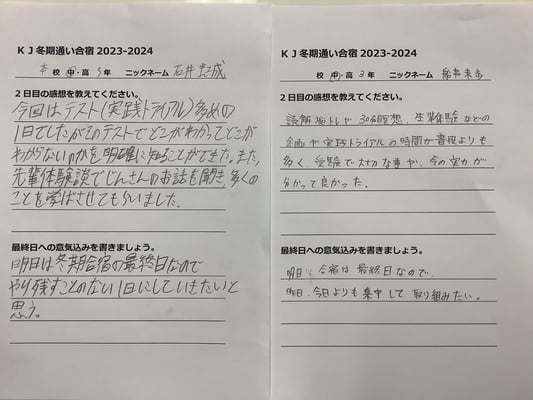 KJ冬期通い合宿 2023-2024
本 校 中・高 3年 ニックネーム 石井
2日目の感想を教えてください。
今回はテスト(実践トライアル)多めの
1日でしたがそのテストでどこがわかってどこが
わからないのかを明確に知ることができた。また、
先輩体験談でじんさんのお話を聞き、多くの
ことを学ばさせてもらいました。
最終日への意気込みを書きましょう。
明日は冬期合宿の最終日なので
やり残すことのない1日にしていきたいと
思う。
KJ冬期通い合宿 2023-2024
校 中・高 3年 ニックネーム
2日目の感想を教えてください。
読解 トレや 30 瞑想、先輩体験などの
企画や実践トライアルの時間が普段よりも
多く、受験で大切な事や、今の実力が
分かって良かった。
最終日への意気込みを書きましょう。
明日は、合宿は最終日なので、
昨日、今日よりも集中して取り組みたい。